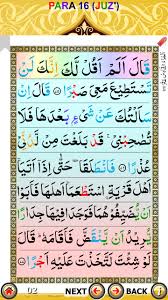 PARA 16 (JUZ')
قَالَ اَلَمْ اَقُلْ لَّكَ اِنَّكَ لَنْ
تَسْتَطِيْعَ مَعِيَ صَبْرًا ۝ قَالَ اِنْ
سَاَلْتُكَ عَنْ شَيْءٍۭ بَعْدَهَا فَلَا
تُصٰحِبْنِيْ ۚ قَدْ بَلَغْتَ مِنْ لَّدُنِّيْ
عُذْرًا ۝ فَانْطَلَقَا حَتّٰۤى اِذَاۤ اَتَيَاۤ
اَهْلَ قَرْيَةِ ِۨاسْتَطْعَمَاۤ اَهْلَهَا فَاَبَوْا
اَنْ يُّضَيِّفُوْهُمَا فَوَجَدَا فِيْهَا جِدَارًا
يُّرِيْدُ اَنْ يَّنْقَضَّ فَاَقَامَهٗ ؕ قَالَ
لَوْ شِئْتَ لَتَّخَذْتَ عَلَيْهِ اَجْرًا ۝
02